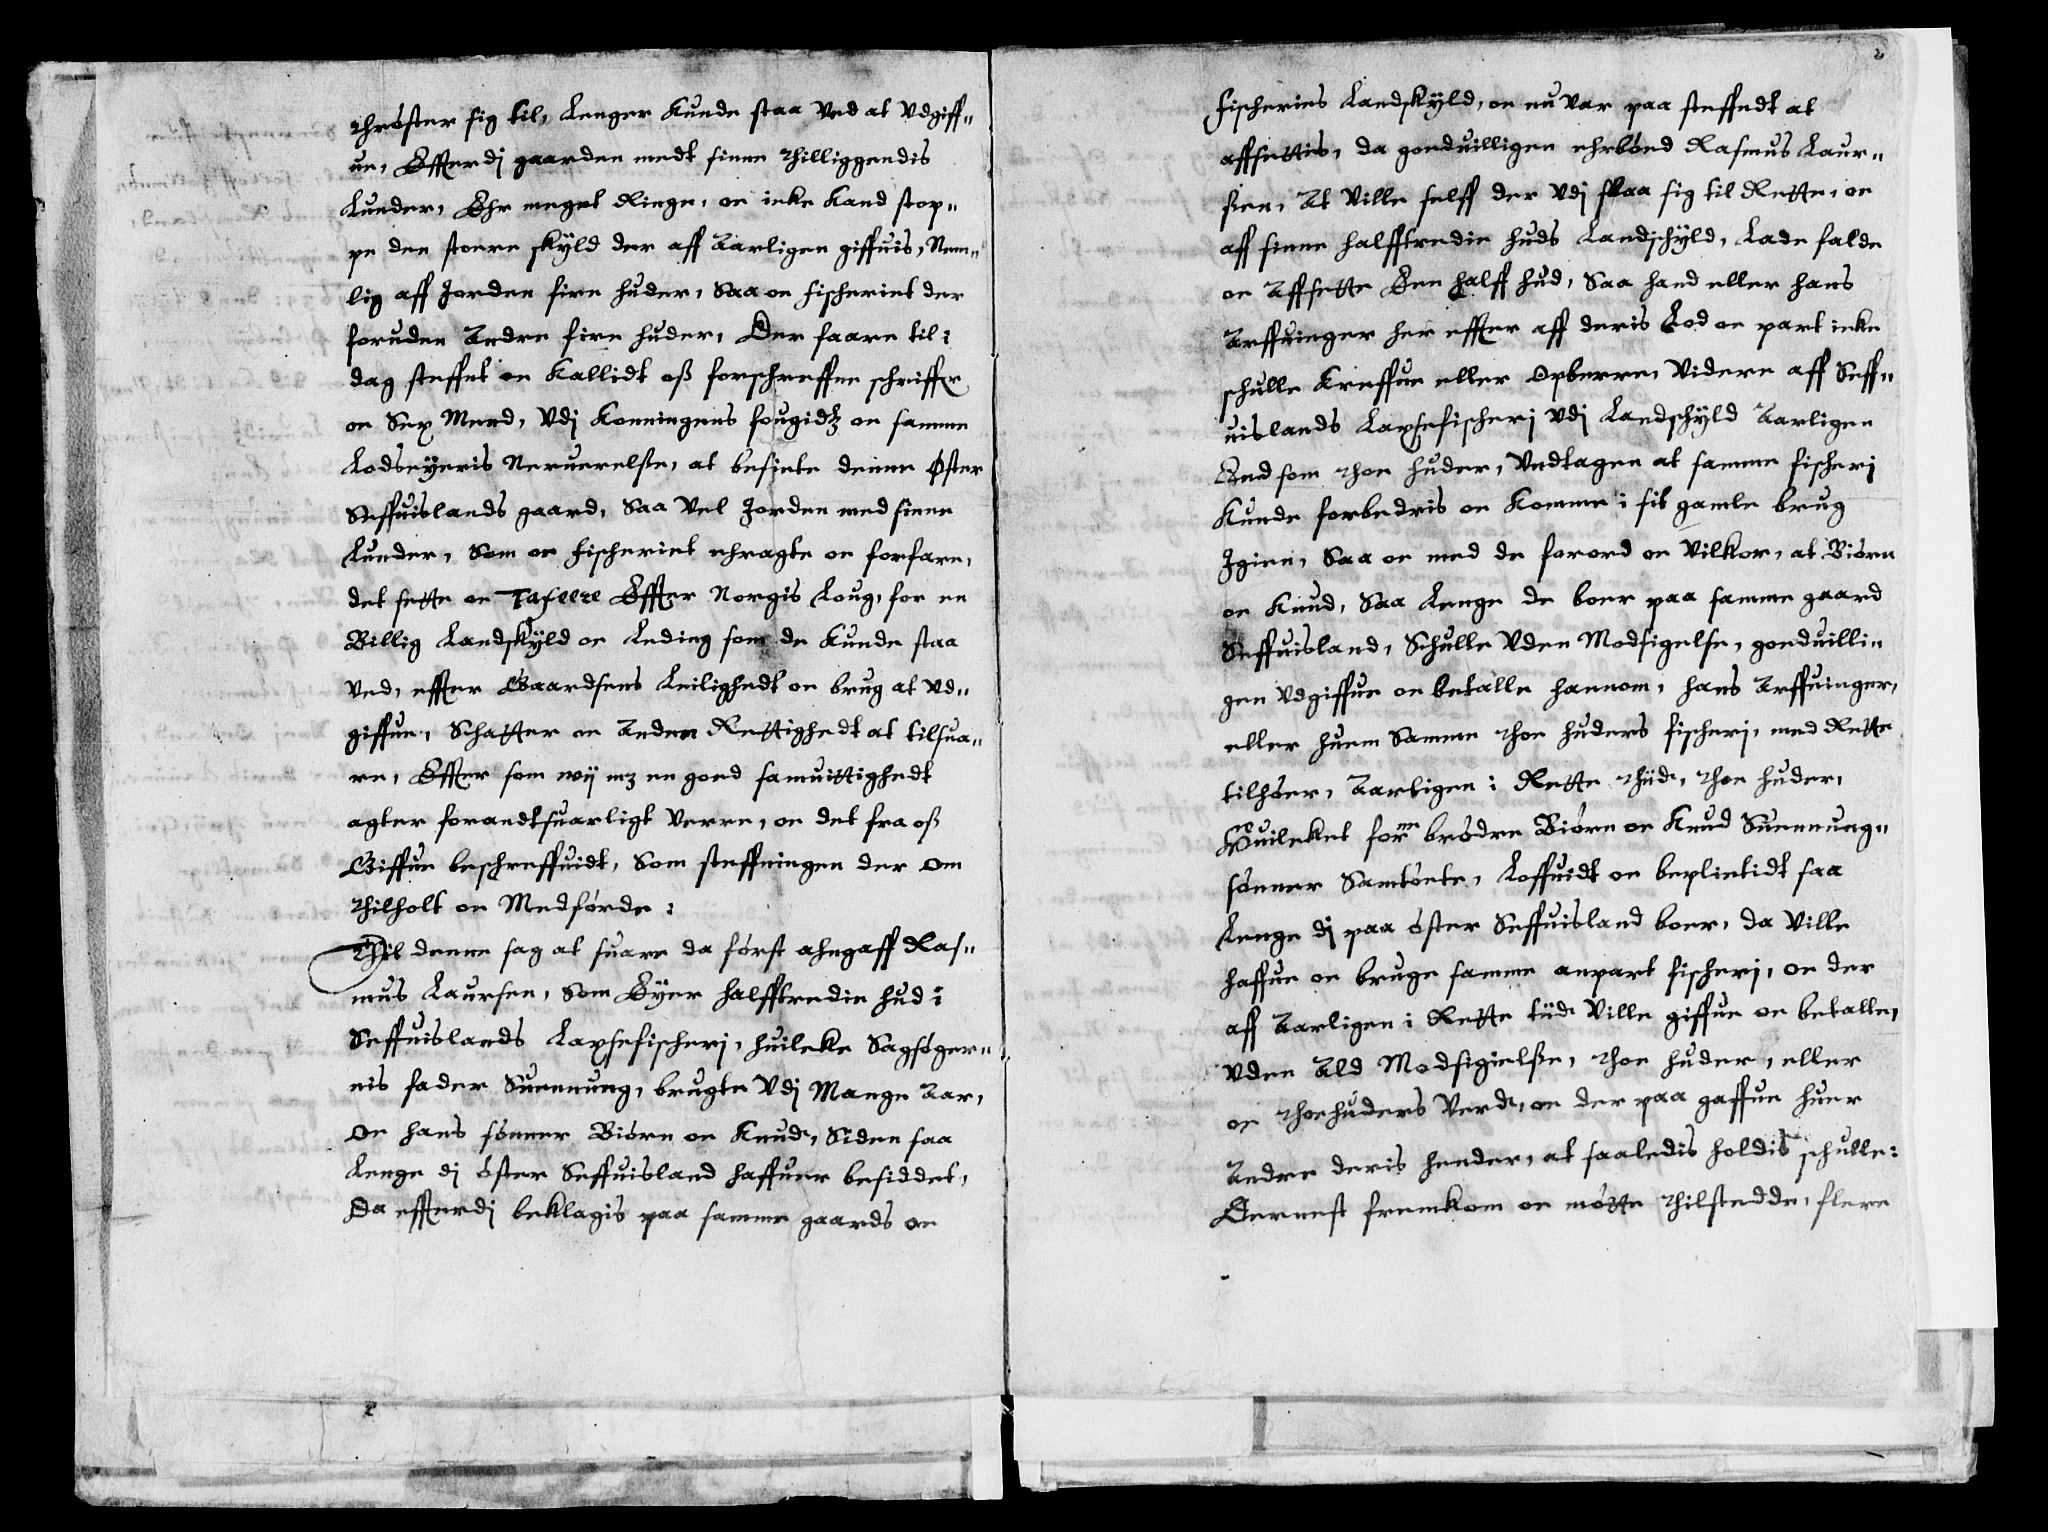 thrøster sig til, Lenger Kunde staa Ved at Vdgiff-
ue, Effterdj gaarden medt sinne thilliggendis
Lunder, Ehr meget Ringe, oc icke Kand stop-
pe den stoere skyld der aff Aarligen giffuis, Nem-
lig aff Jorden fire huder, Saa oc fischeriet der
foruden Andre fire huder, Der faare til i
dag steffnet oc Kallidt oß forschreffne schriffr
oc Sex Mend, Vdj Konningens fougidtz oc samme
Lodseyeris Neruerelse, at besicte denne Øster
Seffuislands gaard, Saa Vel Jorden med sinne
Lunder, Som oc fischeriet ehragte oc forfare,
det sette oc Taxere Effter Norgis Loug, for en
Billig Landskyld oc Leding som de Kunde staa
Ved, effter Gaardsens Leilighedt oc brug at Vd-
giffue, Schatter oc Anden Rettighedt at tilsua-
re, Effter som wij mz en goed samuittighedt
agter forandtsuarligt Verre, oc det fra oß
Giffue beschreffuidt, Som steffningen der om
thilholt oc Medførde:
Thil denne sag at suare da først ahngaff Ras-
mus Laursen, Som Eyer halfftredie hud i
Seffuislands Laxsefischerj, huilcke Sagsøger-
nis fader Suennung, brugte Vdj Mange Aar,
Oc hans sønner Biørn oc Knud, Siden saa
Lenge dj øster Seffuisland haffuer besiddet,
Da effterdj beklagis paa samme gaards oc
2
fischeries Landskyld, oc nu Var paa steffndt at
affsettis, da goeduilligen ehrbød Rasmus Laur-
sen, At Ville selff der Vdj slaa sig til Rette, oc
aff sinne halfftredie huds Landschyld, Lade falde
oc Affsette Een halff hud, Saa hand eller hans
Arffuinger her effter aff deris Lod oc part icke
schulle Kreffue eller Opberre, Videre aff Seff-
uislands Laxsefischerj Vdj Landschyld Aarligen
End som thoe huder, Vndtagen at samme fischerj
Kunde forbedris oc Komme i sit gamle brug
Igien, Saa oc med de forord oc Vilkor, at Biørn
oc Knud, Saa Lenge de boer paa samme gaard
Seffuisland, Schulle Vden Modsigelse, goeduilli-
gen Vdgiffue oc betalle hannom, hans Arffuinger,
eller huem Samme thoe huders fischerj, med Rette
tilhører, Aarligen i Rette thiid, thoe huder,
Huilcket forne brødre Biørn oc Knud Suennung-
sønner Samtøcte, Loffuidt oc beplictidt saa
Lenge dj paa øster Seffuisland boer, da Ville
haffue oc bruge samme anpart fischerj, oc der
aff Aarligen i Rette tiid Ville giffue oc betalle,
Vden Ald Modsigielße, thoe huder, eller
oc thoehuders Verd, oc der paa gaffue huer
Andre deris hender, at saaledis holdis schulle:
Dernest fremkom oc møtte thilstedde, flere